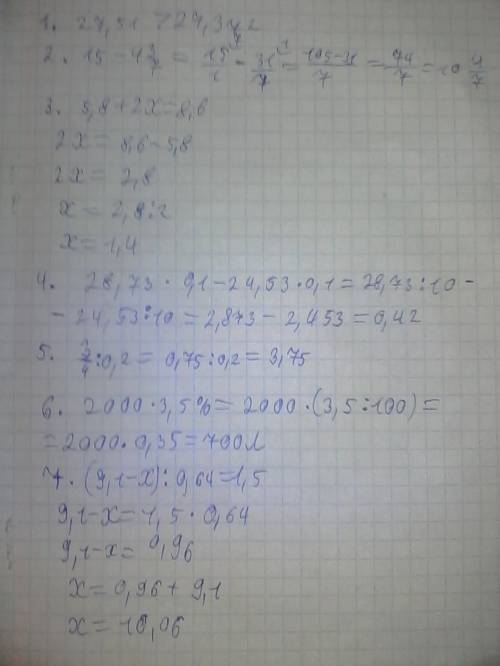 1. 27,51 > 27,3
2. 15 - 4 3/7 = 15/1 - 31/7 = 105-31/7 = 74/7 = 10 4/7
3. 5,8 + 2x = 8,6
2x = 8,6 - 5,8
2x = 2,8
x = 2,8 : 2
x = 1,4
4. 28,73 · 0,1 - 24,53 · 0,1 = 28,73 : 10 -
- 24,53 : 10 = 2,873 - 2,453 = 0,42
5. 3/4 : 0,2 = 0,75 : 0,2 = 3,75
6. 2000 · 3,5% = 2000 · (3,5 : 100) =
= 2000 · 0,35 = 700л
7. (9,1-x) : 0,64 = 1,5
9,1-x = 1,5 · 0,64
9,1-x = 0,96
x = 0,96 + 9,1
x = 10,06